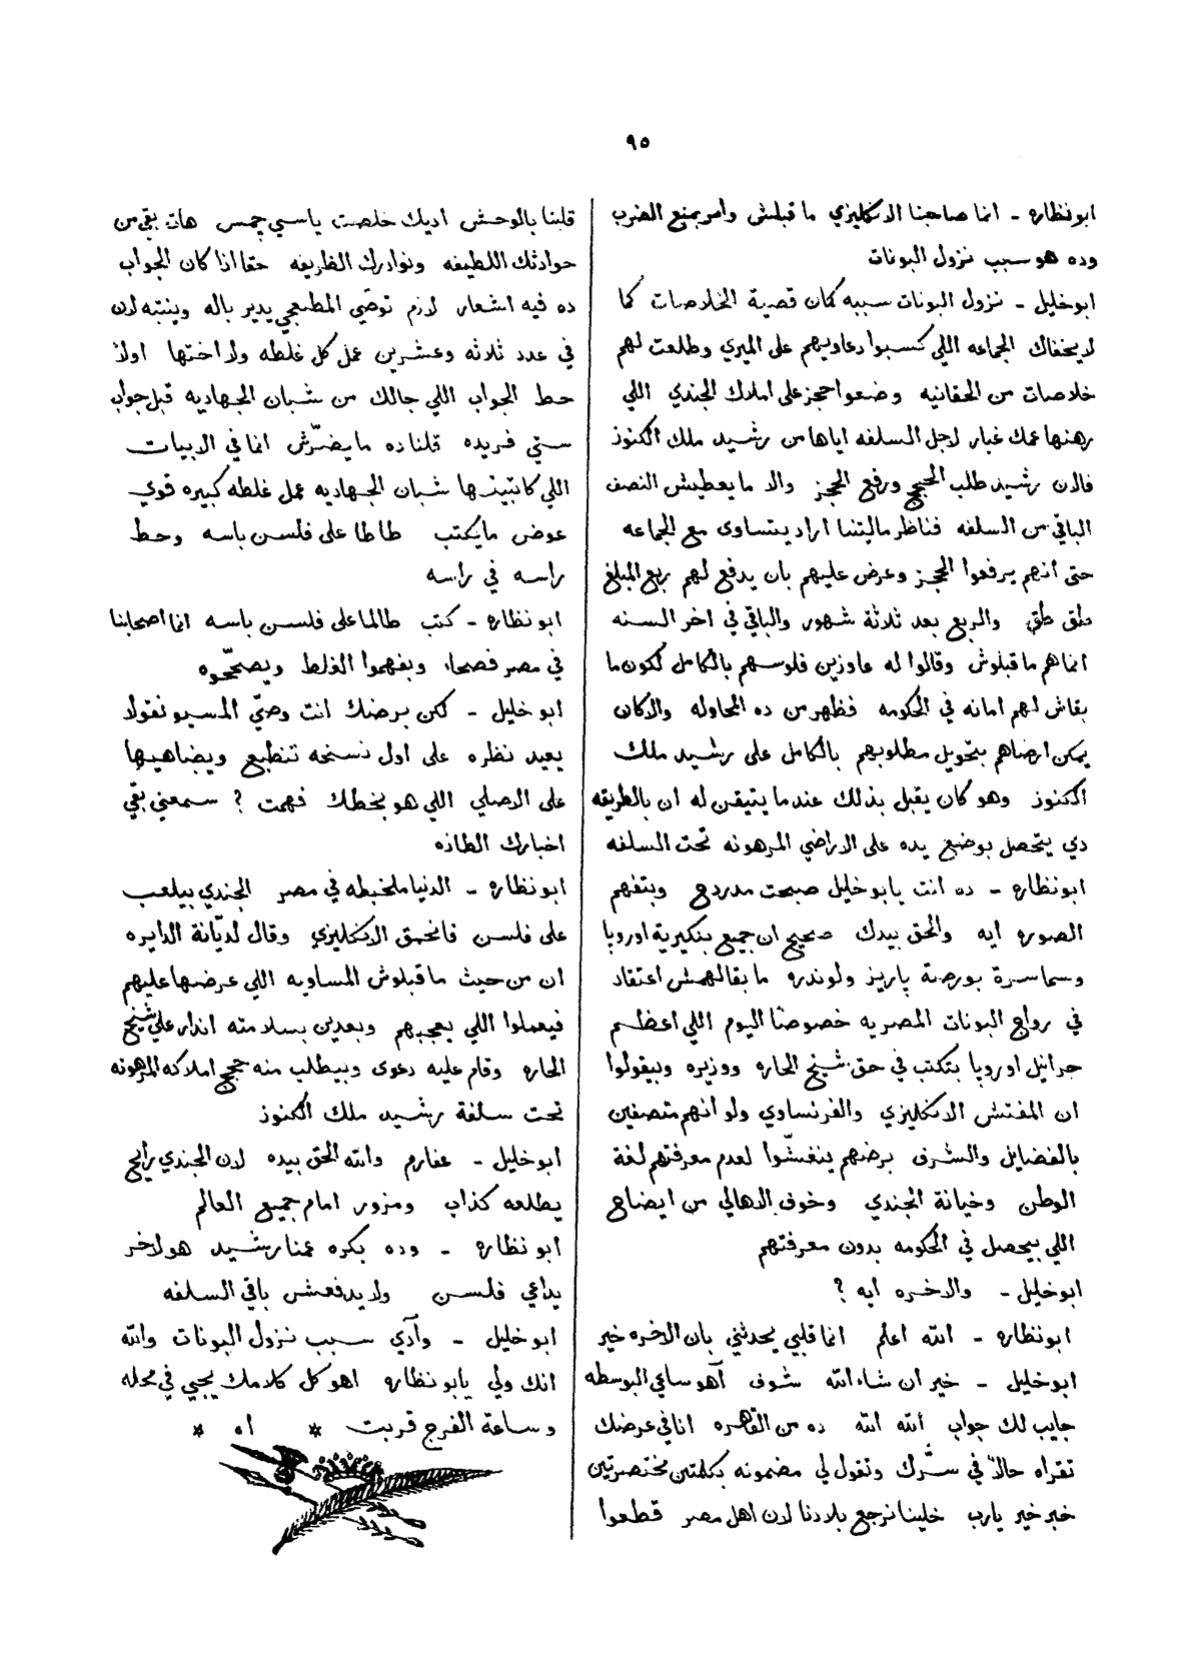 ٩٥
ابو نظاره - انما صاحبنا الانكليزي ما قبلش وامر بمنع الضرب
وده هو سبب نزول البونات
ابو خليل - نزول البونات سببه كمان قضية الخلاصات كما
لا يخفاك الجماعه اللي كسبوا دعاويهم على الميري وطلعت لهم
خلاصات من الحقانيه وضعوا حجز على املاك الجندي اللي
رهنها عمك غبار لاجل السلفه اياها من رشيد ملك الكنوز
فالان رشيد طلب الحجج ورفع الحجز والا ما يعطيش النصف
الباقي من السلفه فناظر ماليتنا اراد يتساوى مع الجماعه
حتى انهم يرفعوا الحجز وعرض عليهم بان يدفع لهم ربع المبلغ
طق طق والربع بعد ثلاثة شهور والباقي في اخر السنه
انماهم ما قبلوش وقالوا له عاوزين فلوسهم بالكامل لكون ما
بقاش لهم امانه في الحكومه فظهر من ده المحاوله والا كان
يمكن ارضاهم بتحويل مطلوبهم بالكامل على رشيد ملك
الكنوز وهو كان يقبل بذلك عندما يتيقن له ان بالطريقه
دي يتحصل بوضع يده على الاراضي المرهونه تحت السلفه
ابو نظاره - ده انت يابو خليل صبحت مدردح وبتفهم
الصوره ايه والحق بيدك صحيح ان جميع بنكيرية اوروپا
وسماسرة بورصة پاريز ولوندره ما بقالهمش اعتقاد
في رواج البونات المصريه خصوصًا اليوم اللي اعظم
جرانيل اوروپا بتكتب في حق شيخ الحاره ووزيره وبيقولوا
ان المفتش الانكليزي والفرنساوي ولو انهم متصفين
بالفضايل والشرف برضهم ينغشّوا لعدم معرفتهم لغة
الوطن وخيانة الجندي وخوف الاهالي من ايضاح
اللي بيحصل في الحكومه بدون معرفتهم
ابو خليل - والاخره ايه ؟
ابو نظاره - الله اعلم انما قلبي يحدثني بان الاخره خير
ابو خليل - خير ان شاء الله شوف آهو ساعي البوسطه
جايب لك جواب ألله الله ده من القاهره انا في عرضك
تقراه حالاً في سرّك وتقول لي مضمونه بكلمتين مختصرتين
خبر خير يارب خلينا نرجع بلادنا لان اهل مصر قطعوا
قلبنا بالوحش اديك خلصت ياسي چمس هات بقي من
حوادثك اللطيفه ونوادرك الظريفه حقا اذا كان الجواب
ده فيه اشعار لازم توصّي المطبعجي يدير باله وينتبه لان
في عدد ثلاثه وعشرين عمل كل غلطه ولا اختها اولاً
حط الجواب اللي جالك من شبان الجهاديه قبل جواب
ستي فريده قلنا ده ما يضرّش انما في الابيات
اللي كاتبينها شبان الجهاديه عمل غلطه كبيره قوي
عوض ما يكتب طاطا على فلسن باسه وحط
راسه في راسه
ابو نظاره - كتب طالما على فلسن باسه انما اصحابنا
في مصر فصحاء وبفهموا الغلط ويصحّحوه
ابو خليل - لكن برضك انت وصيّ المسيو نقولا
يعيد نظره على اول نسخه تنطبع ويضاهيها
على الاصلي اللي هو بخطك فهمت ؟ سمعني بقي
اخبارك الطازه
ابو نظاره - الدنيا ملخبطه في مصر الجندي بيلعب
على فلسن فانحمق الانكليزي وقال لديّانة الدايره
ان من حيث ما قبلوش المساويه اللي عرضها عليهم
فيعملوا اللي يعجبهم وبعدين بسلامته اندار على شيخ
الحاره وقام عليه دعوى وبيطلب منه حجج املاكه المرهونه
تحت سلفة رشيد ملك الكنوز
ابو خليل - عفارم والله الحق بيده لان الجندي رايح
يطلعه كذاب ومزور امام جميع العالم
ابو نظاره - وده بكره عمنا رشيد هو لاخر
يداعي فلسن ولا يدفعش باقي السلفه
ابو خليل - وآدي سبب نزول البونات والله
انك ولي يابو نظاره اهو كل كلامك يجي في محله
وساعة الفرج قربت * اه *